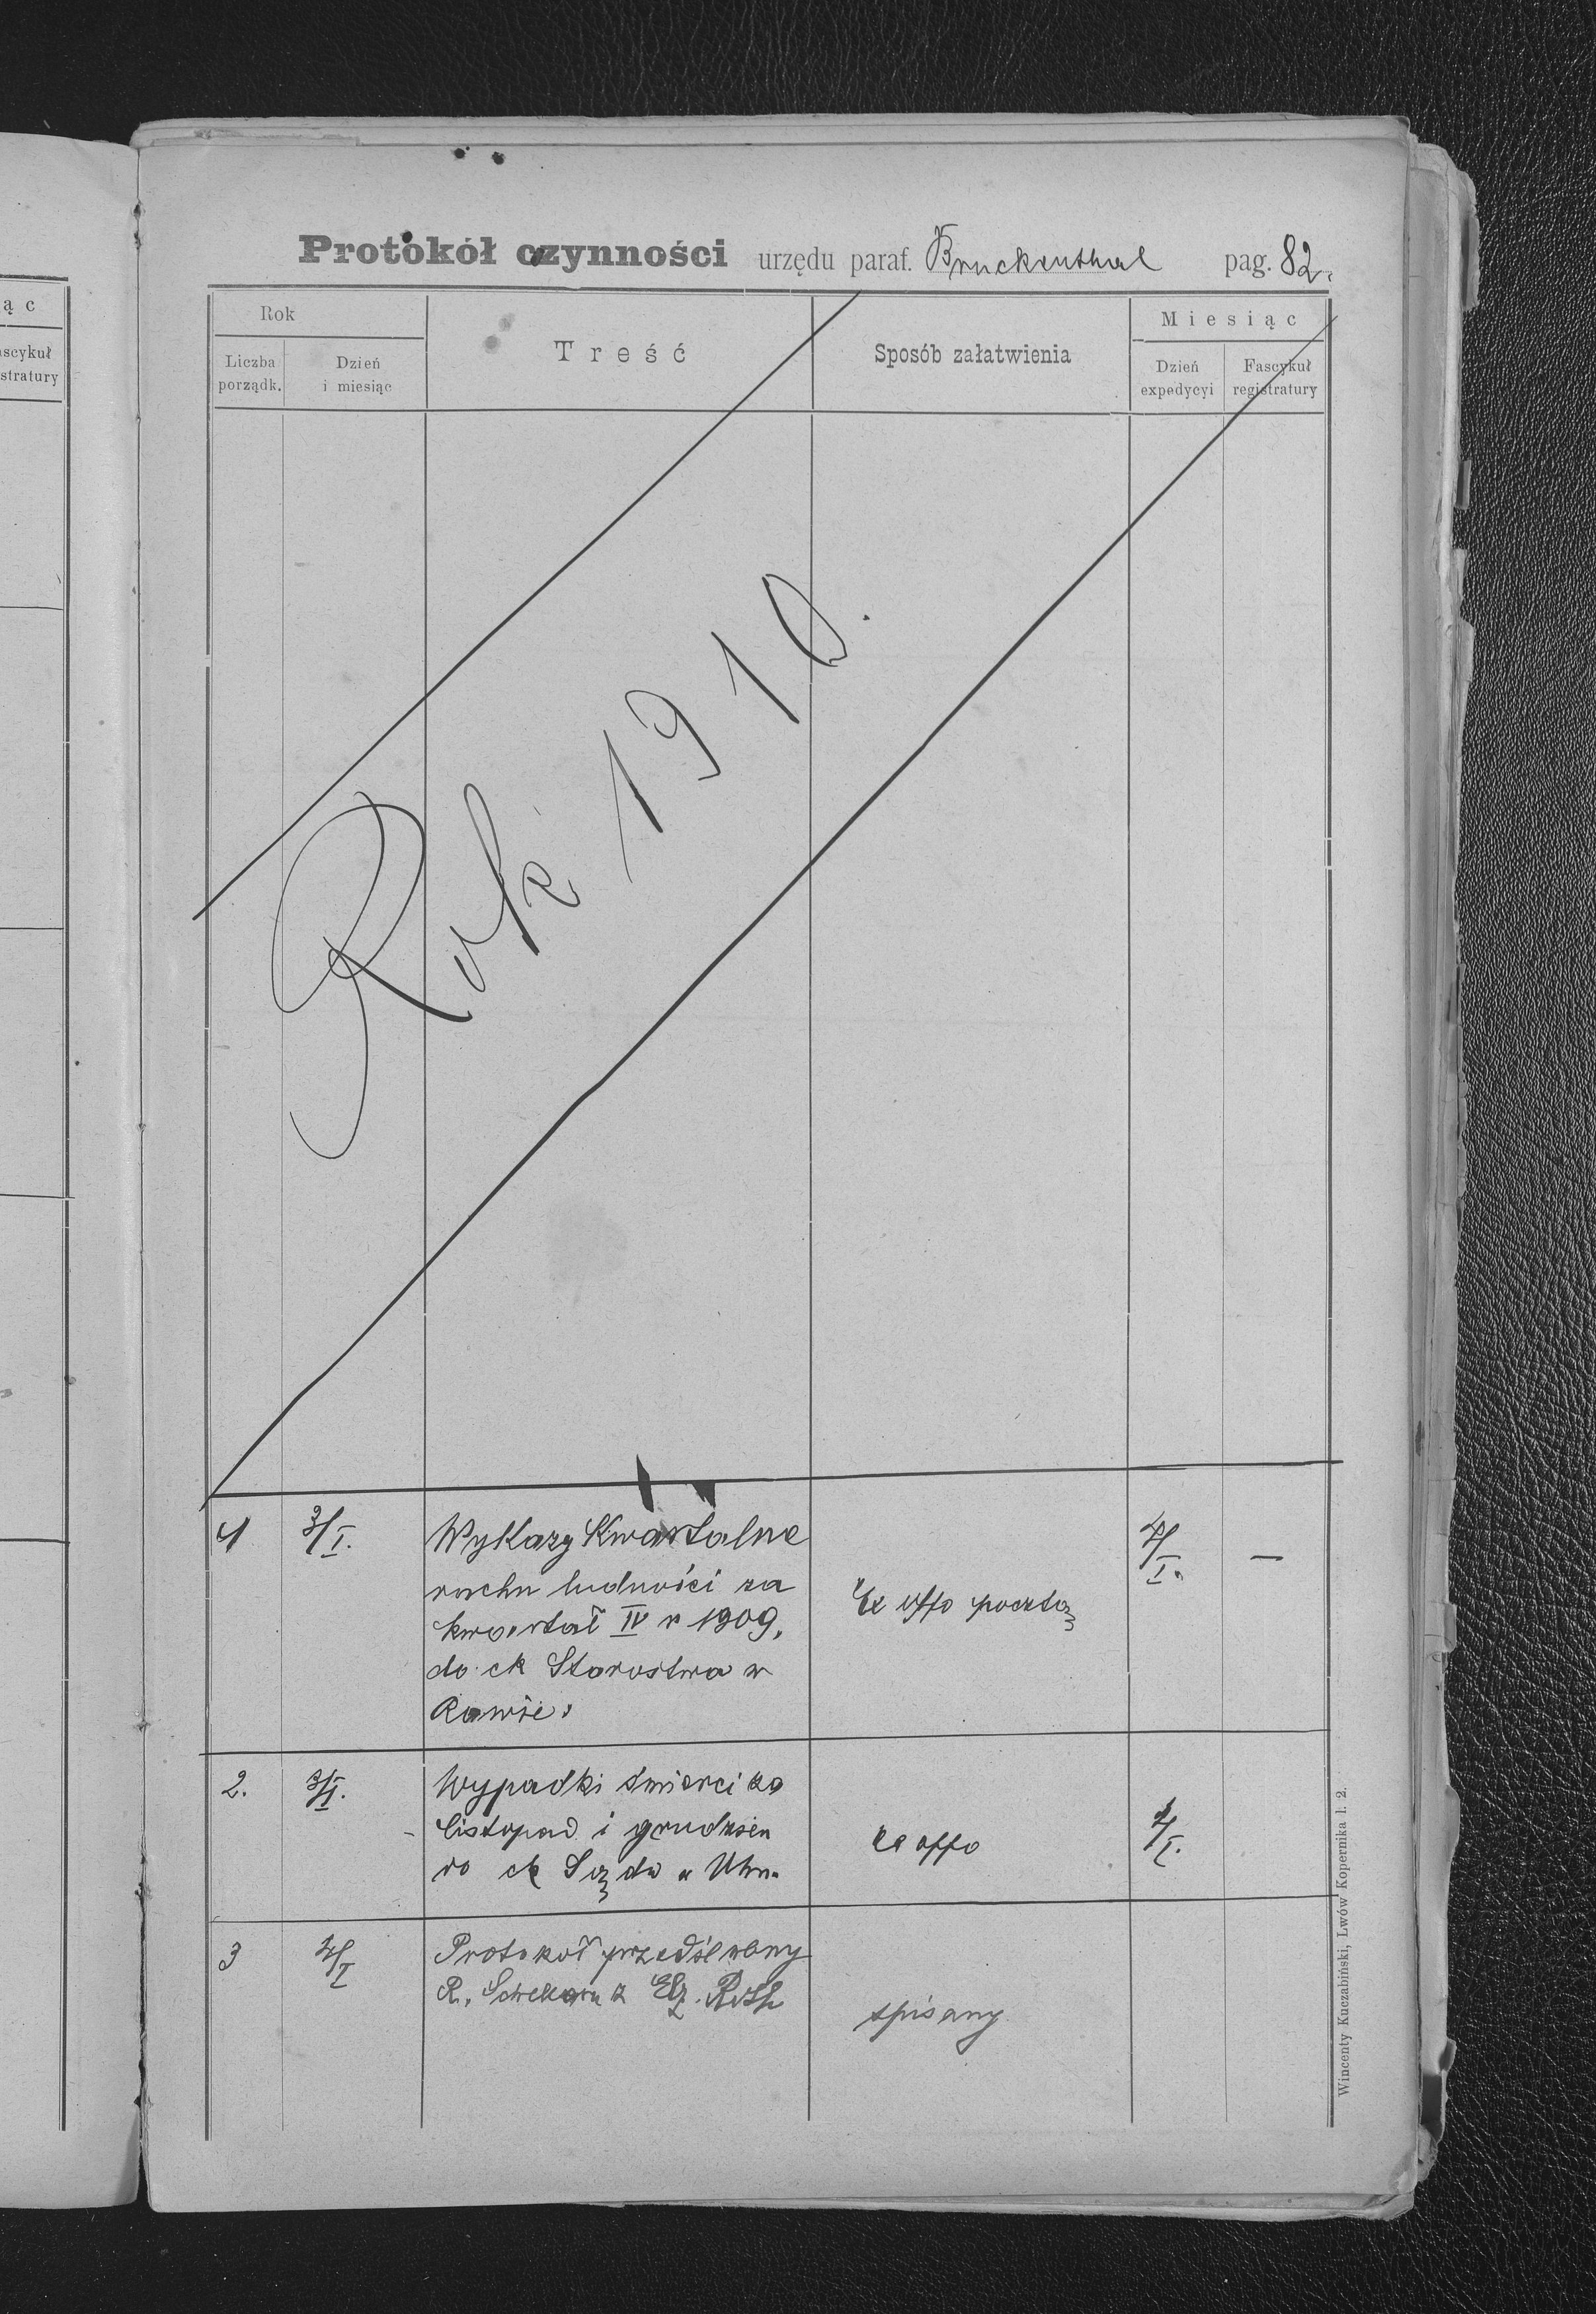 ą c
ascykuł
stratury
Protokół czynności urzędu paraf. Bruckenthal pag. 82.
Rok
Treść
Sposób załatwienia
Miesiąc
Liczba porządk.
Dzień i miesiąc
Dzień expedycyi
Fascykuł registratury
Rok 1910.
1 3/I. Wykazy Kwartalne 4/I. —
ruchu ludności za
kwartał IV r 1909, Ex offo pocztą
do ck Starostwa w
Rawie.
2. 3/I. Wypadki śmierci za
listopad i grudzień ex offo 4/I.
do ck Sądu w Uhn.
3 4/I Protokół przedślubny
R. z Elz. Roth
spisany
Wincenty Kuczabiński, Lwów Kopernika l. 2.